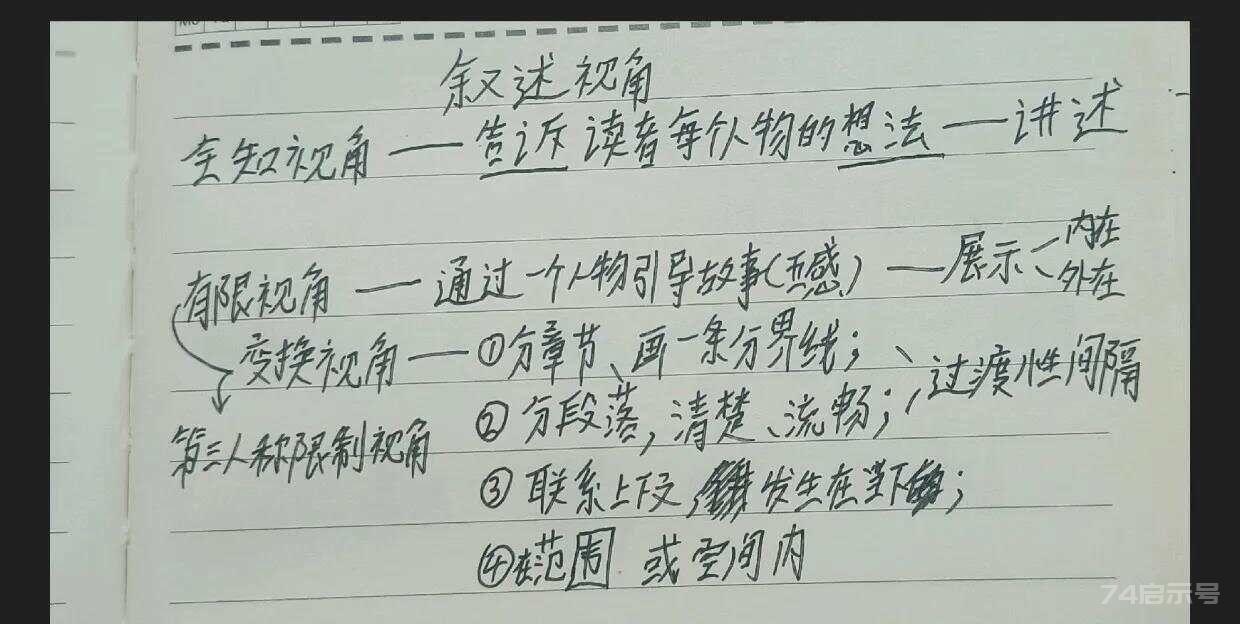 叙述视角
全知视角——告诉读者每个人物的想法——讲述
有限视角——通过一个人物引导故事(五感)——展示
内在
外在
变换视角——①分章节、画一条分界线;
②分段落,清楚、流畅;
过渡性间隔
第三人称限制视角
③联系上下文,发生在当下;
④在范围或空间内
74启示号